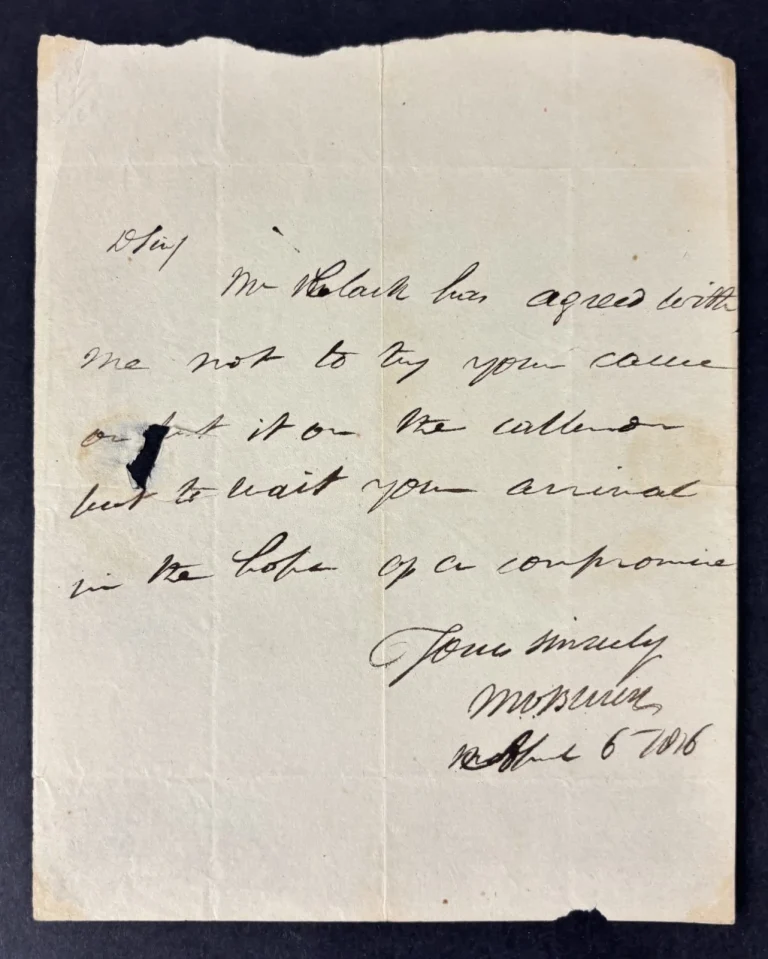 D Sir
Mr has agreed with
me not to try your cause
or put it on the callender
but to wait your arrival
in the hope of a compromise
Yours sincerely
MVBuren
April 6 1816